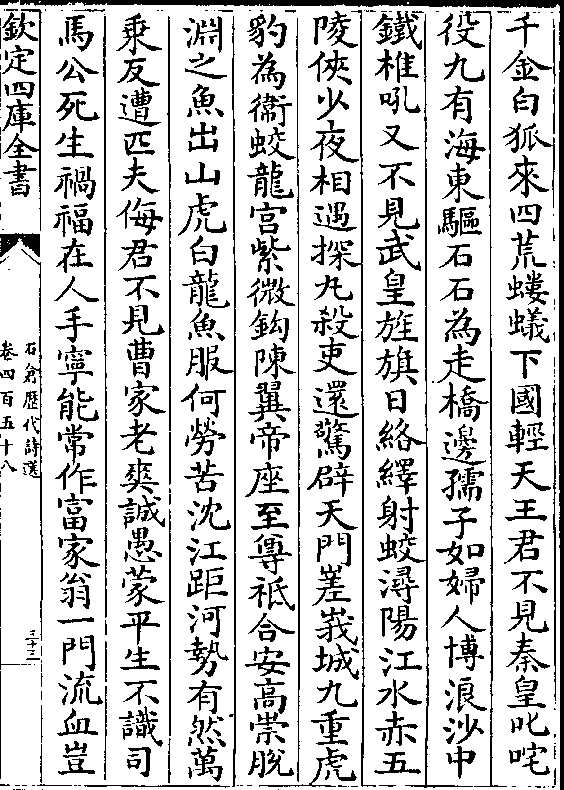 千金白狐來四荒螻蟻下國輕天王君不見秦皇叱咤
役九有海東驅石石為走橋邊孺子如婦人博浪沙中
鐵椎吼又不見武皇旌旗日絡繹射蛟潯陽江水赤五
陵俠少夜相遇探丸殺吏還驚辟天門嵳峩城九重虎
豹為衞蛟龍宫紫微鈎陳翼帝座至尊祇合安高崇脫
淵之魚出山虎白龍魚服何勞苦沈江距河勢有然萬
乗反遭匹夫侮君不見曹家老奭誠愚蒙平生不識司
馬公死生禍福在人手寧能常作富家翁一門流血豈
欽定四庫全書
石倉歴代詩選
卷四百五十八
三十三